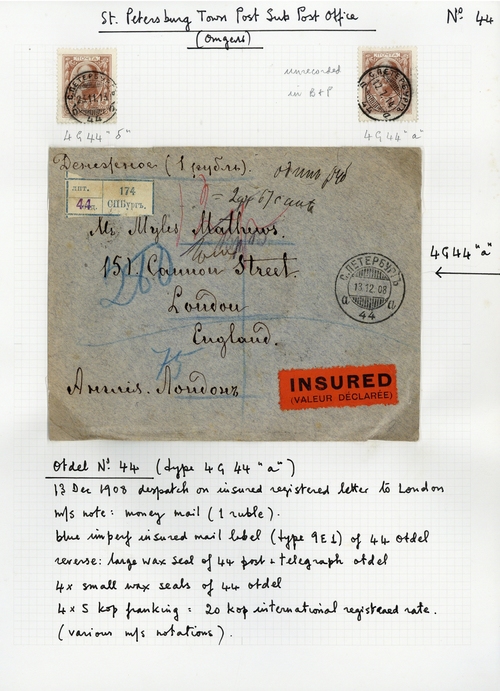 St. Petersburg Town Post Sub Post Office
Nº 44
(Отдел)
ПОЧТА
С.ПЕТЕРБУРГЪ
44
ПОЧТА
С.ПЕТЕРБУРГЪ
14
unrecorded
in B+P
4G44 "б"
4G44 "a"
Денежное (1 рубль).
один руб
174
44
СПБургъ.
Mr Myles Mathews.
151. Cannon Street.
London
England.
Англія. Лондонъ
200
С.ПЕТЕРБУРГЪ
13.12.08
а а
44
4G44 "a"
INSURED
(VALEUR DÉCLARÉE)
Otdel Nº 44 (type 4G 44 "a")
13 Dec 1908 despatch on insured registered letter to London
m/s note: money mail (1 ruble).
blue imperf insured mail label (type 9E1) of 44 otdel
reverse: large wax seal of 44 post + telegraph otdel
4x small wax seals of 44 otdel
4 x 5 kop franking = 20 kop international registered rate.
(various m/s notations).